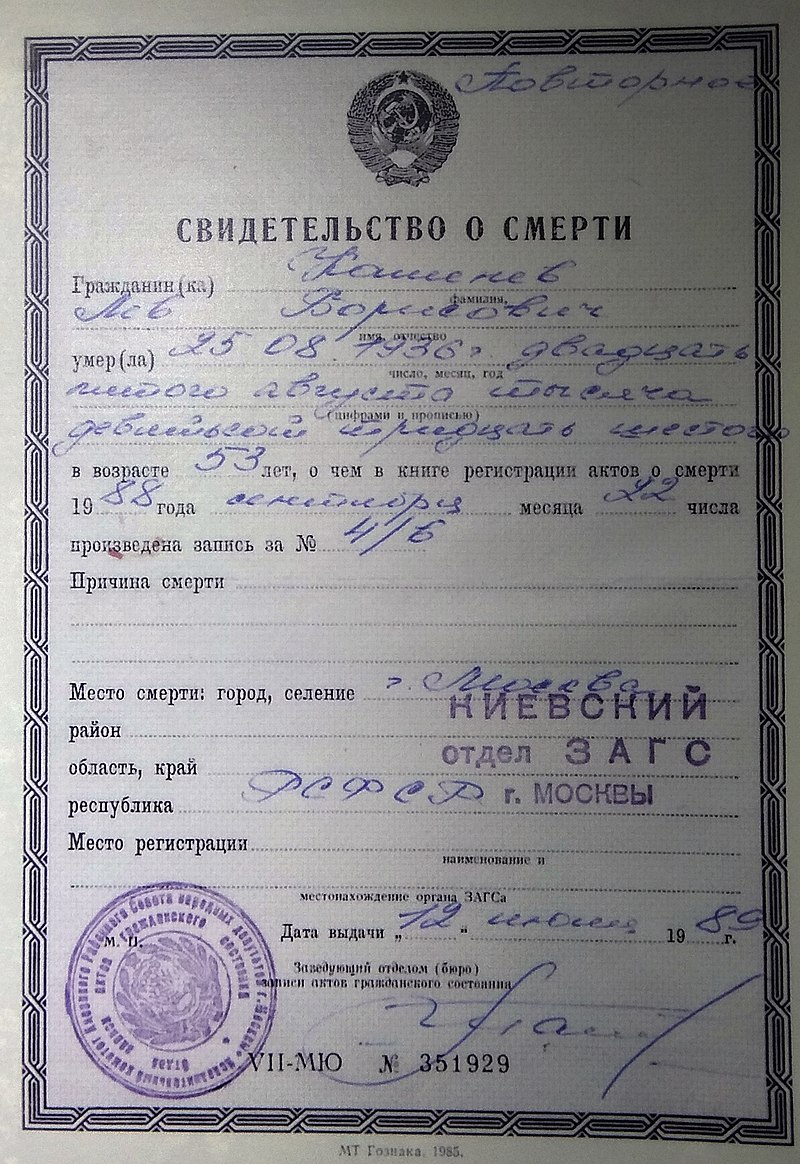 Повторное
СВИДЕТЕЛЬСТВО О СМЕРТИ
Гражданин(ка) Каменев
фамилия,
Лев Борисович
имя, отчество
умер(ла) 25 08 1936г двадцать
число, месяц, год
пятого августа тысяча
(цифрами и прописью)
девятьсот тридцать шестого
в возрасте 53 лет, о чем в книге регистрации актов о смерти
1988 года сентября месяца 22 числа
произведена запись за № 4/6
Причина смерти
Место смерти: город, селение г. Москва
КИЕВСКИЙ
район
отдел ЗАГС
область, край
республика РСФСР
г. МОСКВЫ
Место регистрации
наименование и
местонахождение органа ЗАГСа
М. П. Дата выдачи „12“ июня 1989 г.
Заведующий отделом (бюро)
записи актов гражданского состояния
VII-МЮ № 351929
МТ Гознака. 1985.